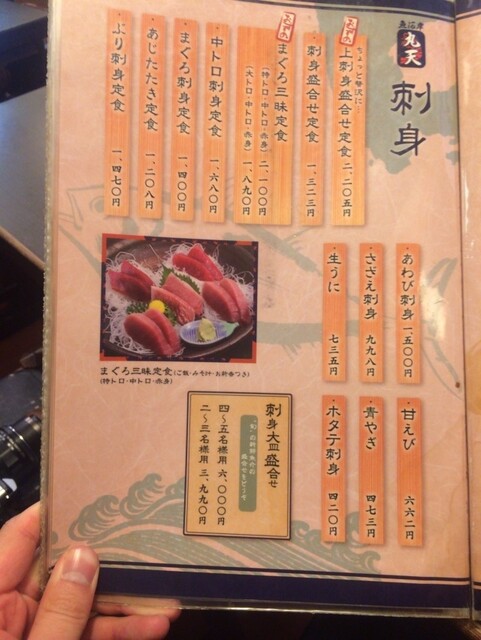 魚河岸
丸天
刺身
おすすめ
ちょっと贅沢に…
上刺身盛合せ定食 二、二〇五円
刺身盛合せ定食 一、三二三円
おすすめ
まぐろ三昧定食
(特トロ・中トロ・赤身) 二、一〇〇円
(大トロ・中トロ・赤身) 一、八九〇円
中トロ刺身定食 一、六八〇円
まぐろ刺身定食 一、四〇〇円
あじたたき定食 一、二〇八円
ぶり刺身定食 一、四七〇円
あわび刺身 一、五〇〇円
さざえ刺身 九九八円
生うに 七三五円
甘えび 六六二円
青やぎ 四七三円
ホタテ刺身 四二〇円
まぐろ三昧定食(ご飯・みそ汁・お新香つき)
(特トロ・中トロ・赤身)
刺身大皿盛合せ
四〜五名様用 六、〇〇〇円
二〜三名様用 三、九九〇円